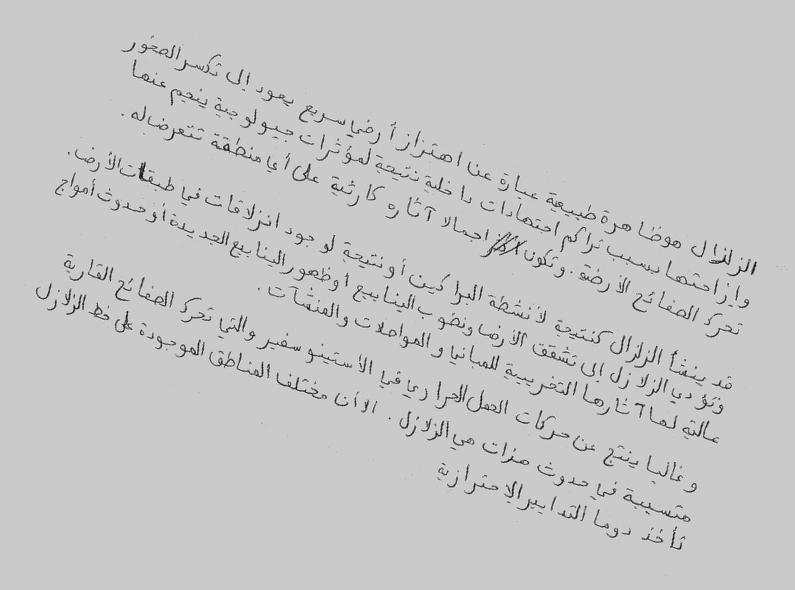 الزلزال هو ظاهرة طبيعية عبارة عن اهتزاز أرضي سريع يعود إلى تكسر الصخور
وإزاحتها بسبب تراكم اجتهادات داخلية نتيجة لمؤثرات جيولوجية ينجم عنها
تحرك الصفائح الأرضية. وتكون اجمالا آثاره كارثية على أي منطقة تتعرضاله.
قد ينشأ الزلزال كنتيجة لأنشطة البراكين أو نتيجة لوجود انزلاقات في طبقات الأرض.
وتؤدي الزلازل إلى تشقق الأرض ونضوب الينابيع أو ظهور الينابيع الجديدة أو حدوث أمواج
عالية لها آثارها التخريبية للمباني و المواصلات والمنشآت.
وغالبا ينتج عن حركات الحمل الحراري في الأستينوسفير والتي تحرك الصفائح القارية
متسببة في حدوث هزات هي الزلازل. الأن مختلف المناطق الموجودة على خط الزلازل
تأخذ دوما التدابير الإحترازية